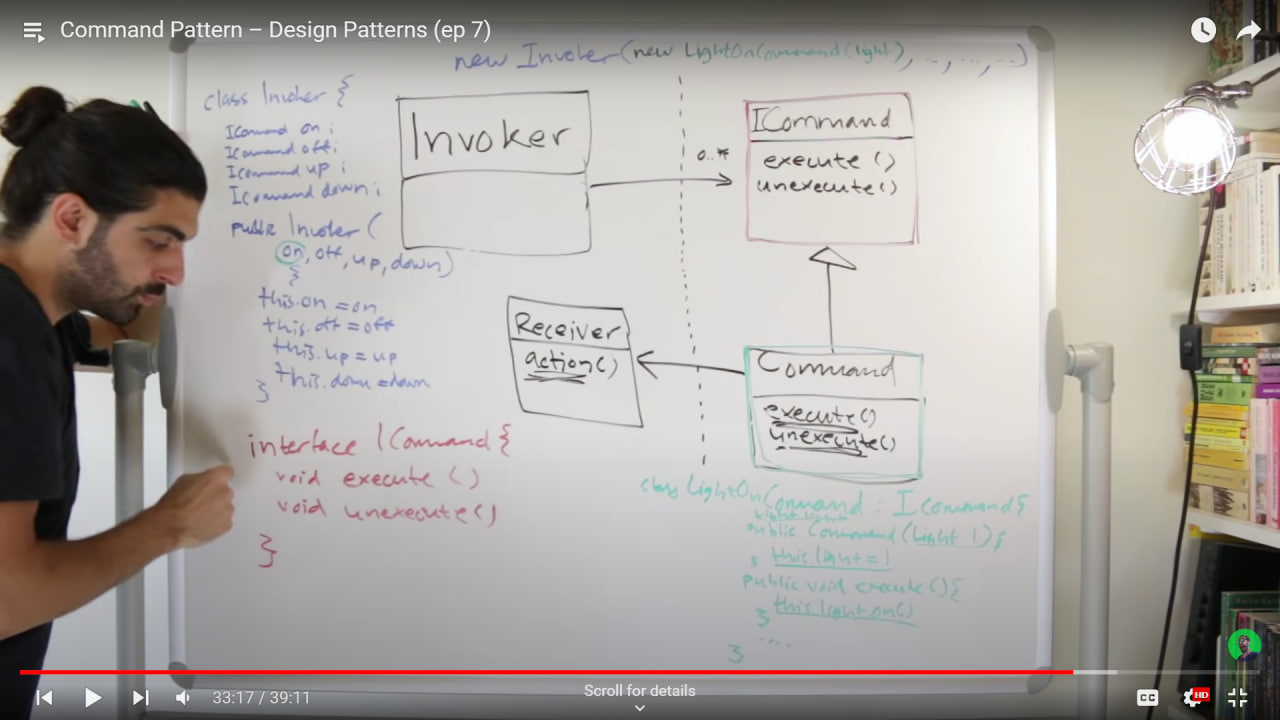 Command Pattern – Design Patterns (ep 7)
new Invoker(new LightOnCommand(light), .., ..., ..)
class Invoker {
ICommand on;
ICommand off;
ICommand up;
ICommand down;
public Invoker(
on, off, up, down)
{
this.on = on
this.off = off
this.up = up
this.down = down
}
interface ICommand {
void execute ()
void unexecute()
}
Invoker
0..*
ICommand
execute ()
unexecute()
Receiver
action()
Command
execute()
unexecute()
class LightOnCommand : ICommand {
Light light
public Command (Light l) {
this.light = l
}
public void execute () {
this.light.on()
}
....
}
33:17 / 39:11
Scroll for details
CC
HD